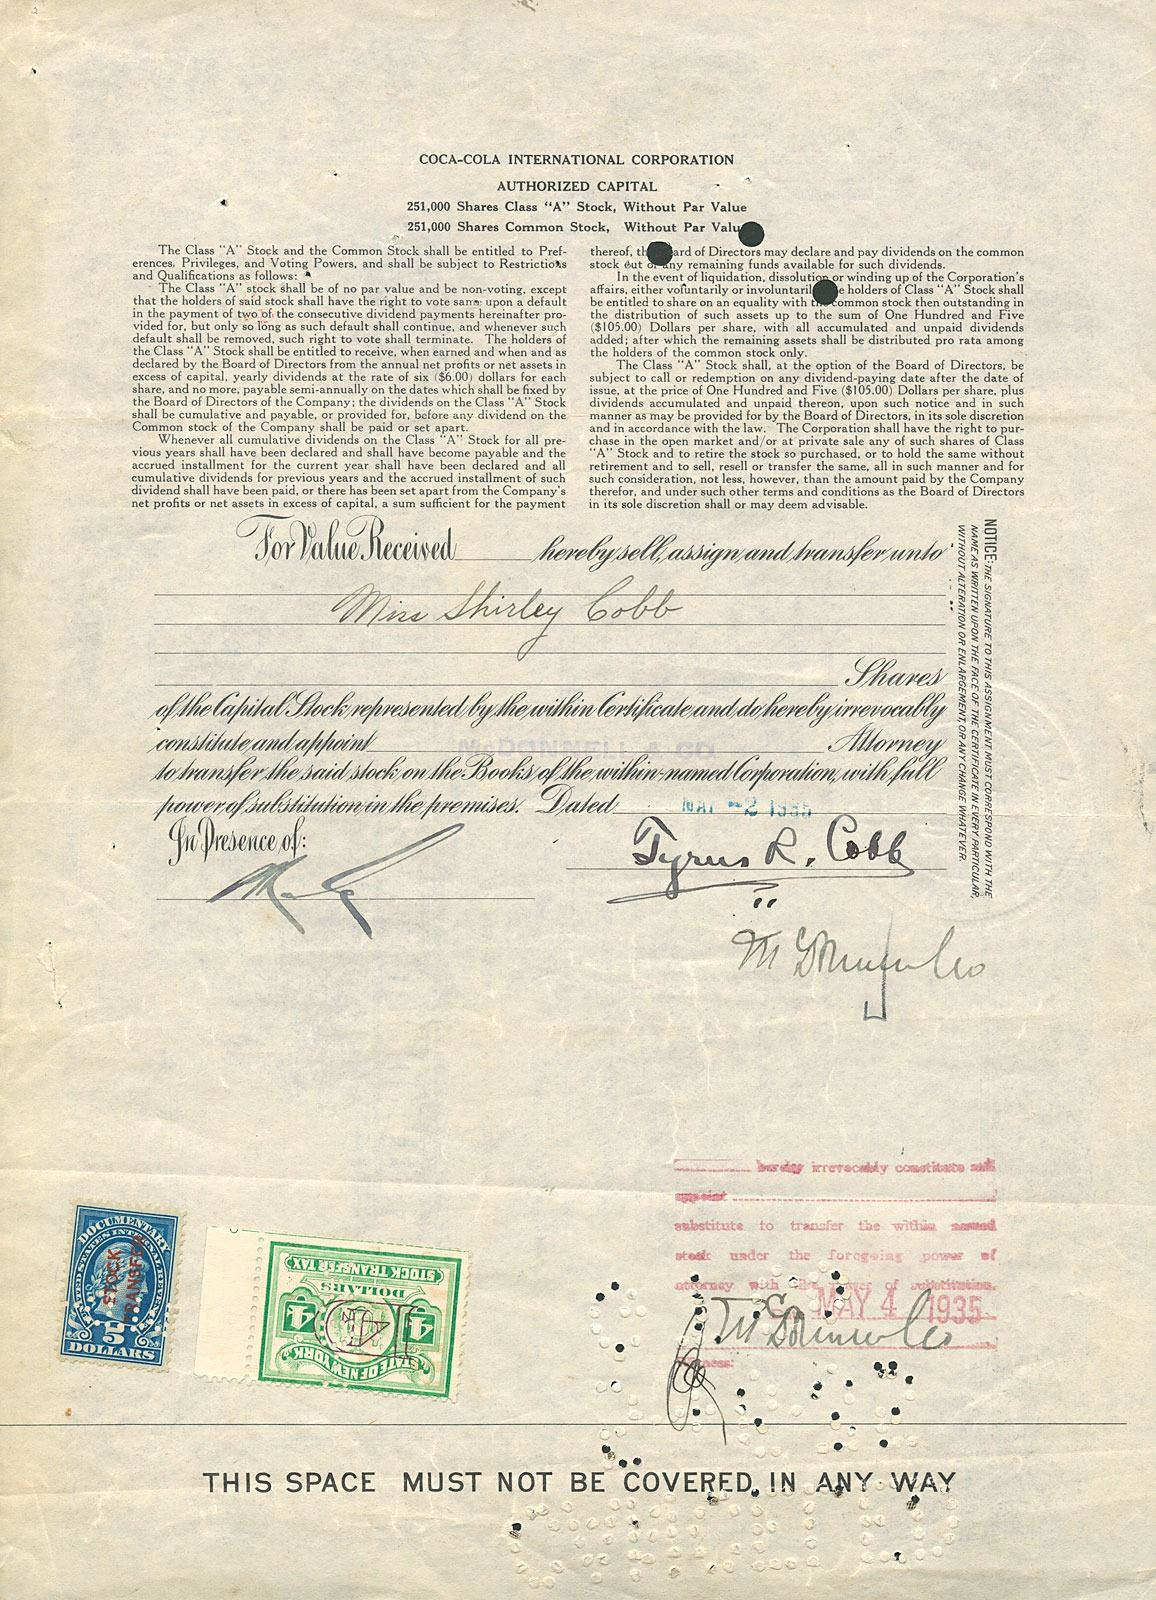 COCA-COLA INTERNATIONAL CORPORATION
AUTHORIZED CAPITAL
251,000 Shares Class "A" Stock, Without Par Value
251,000 Shares Common Stock, Without Par Valu
The Class "A" Stock and the Common Stock shall be entitled to Pref-
erences, Privileges, and Voting Powers, and shall be subject to Restrictions
and Qualifications as follows:
The Class "A" stock shall be of no par value and be non-voting, except
that the holders of said stock shall have the right to vote same upon a default
in the payment of two of the consecutive dividend payments hereinafter pro-
vided for, but only so long as such default shall continue, and whenever such
default shall be removed, such right to vote shall terminate. The holders of
the Class "A" Stock shall be entitled to receive, when earned and when and as
declared by the Board of Directors from the annual net profits or net assets in
excess of capital, yearly dividends at the rate of six ($6.00) dollars for each
share, and no more, payable semi-annually on the dates which shall be fixed by
the Board of Directors of the Company; the dividends on the Class "A" Stock
shall be cumulative and payable, or provided for, before any dividend on the
Common stock of the Company shall be paid or set apart.
Whenever all cumulative dividends on the Class "A" Stock for all pre-
vious years shall have been declared and shall have become payable and the
accrued installment for the current year shall have been declared and all
cumulative dividends for previous years and the accrued installment of such
dividend shall have been paid, or there has been set apart from the Company's
net profits or net assets in excess of capital, a sum sufficient for the payment
thereof, th ard of Directors may declare and pay dividends on the common
stock out of any remaining funds available for such dividends.
In the event of liquidation, dissolution or winding up of the Corporation's
affairs, either voluntarily or involuntaril e holders of Class "A" Stock shall
be entitled to share on an equality with the common stock then outstanding in
the distribution of such assets up to the sum of One Hundred and Five
($105.00) Dollars per share, with all accumulated and unpaid dividends
added; after which the remaining assets shall be distributed pro rata among
the holders of the common stock only.
The Class "A" Stock shall, at the option of the Board of Directors, be
subject to call or redemption on any dividend-paying date after the date of
issue, at the price of One Hundred and Five ($105.00) Dollars per share, plus
dividends accumulated and unpaid thereon, upon such notice and in such
manner as may be provided for by the Board of Directors, in its sole discretion
and in accordance with the law. The Corporation shall have the right to pur-
chase in the open market and/or at private sale any of such shares of Class
"A" Stock and to retire the stock so purchased, or to hold the same without
retirement and to sell, resell or transfer the same, all in such manner and for
such consideration, not less, however, than the amount paid by the Company
therefor, and under such other terms and conditions as the Board of Directors
in its sole discretion shall or may deem advisable.
For Value Received hereby sell, assign and transfer unto
Miss Shirley Cobb
Shares
of the Capital Stock represented by the within Certificate and do hereby irrevocably
constitute and appoint McDONNELL & CO. Attorney
to transfer the said stock on the Books of the within-named Corporation, with full
power of substitution in the premises. Dated MAY -2 1935
In Presence of:
Tyrus R. Cobb
NOTICE: THE SIGNATURE TO THIS ASSIGNMENT MUST CORRESPOND WITH THE
NAME AS WRITTEN UPON THE FACE OF THE CERTIFICATE IN EVERY PARTICULAR,
WITHOUT ALTERATION OR ENLARGEMENT, OR ANY CHANGE WHATEVER.
hereby irrevocably constitute and
appoint
substitute to transfer the within named
stock under the foregoing power of
attorney with like power of substitution.
MAY 4 1935
DOCUMENTARY
UNITED STATES INTERNAL REVENUE
STOCK
TRANSFER
5
DOLLARS
STATE OF NEW YORK
4 4
DOLLARS
STOCK TRANSFER TAX
THIS SPACE MUST NOT BE COVERED IN ANY WAY